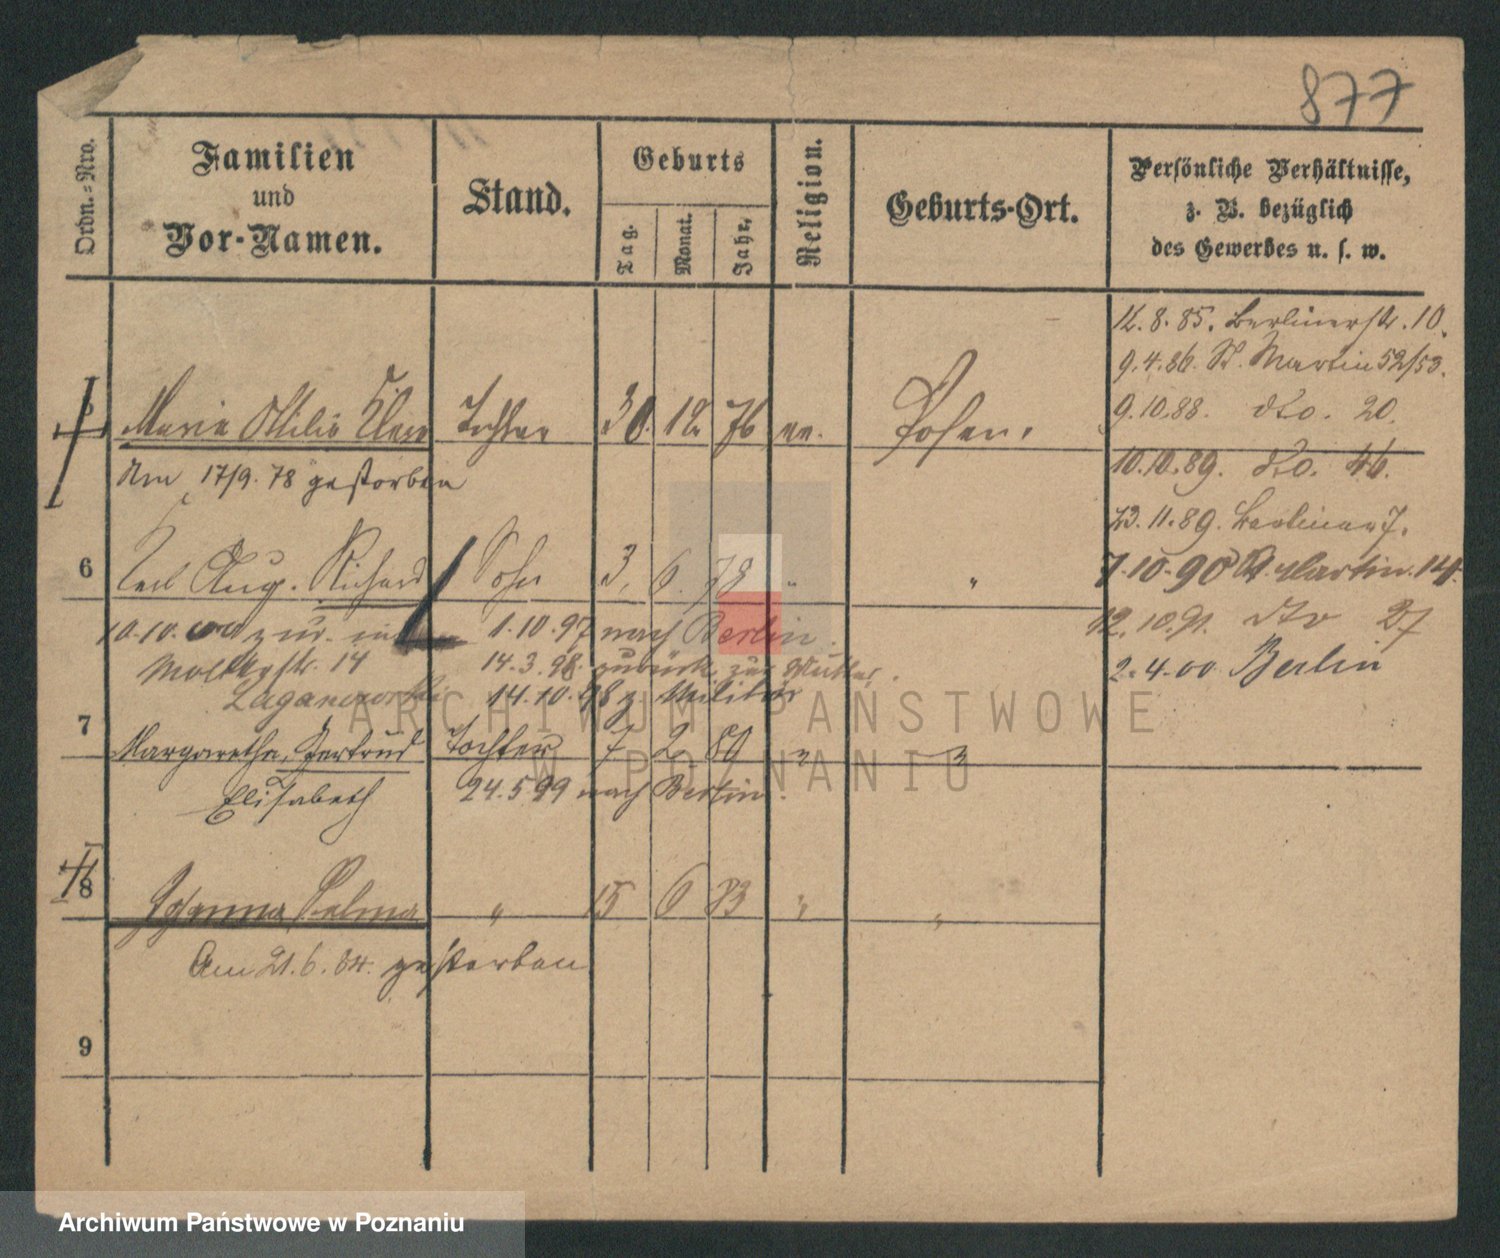 877
Ordn.-Nro.
Familien
und
Vor-Namen.
Stand.
Geburts
Tag.
Monat.
Jahr.
Religion.
Geburts-Ort.
Persönliche Verhältnisse,
z. B. bezüglich
des Gewerbes u. s. w.
12.8.85. Berlinerstr. 10.
9.4.86. St. Martin 52/53.
9.10.88. dto. 20.
10.10.89. dto. 46.
23.11.89. Berliner 7.
7.10.90 St. Martin. 14.
12.10.91. dto 27
2.4.00 Berlin
5 Marie Ottilie Clara Tochter 30. 12. 76 ev. Posen.
Am 17/9. 78 gestorben
6 Carl Aug. Richard Sohn 3. 6. 78 " "
10.10. zur
1.10.97 nach Berlin.
Moltkestr. 14
14.3.98. zurück zur Mutter.
14.10.98 z. Militär
7 Margarethe, Gertrud Tochter 7 2 80 " "
Elisabeth
24.5 99 nach Berlin.
8 Johanna Selma " 15 6 83 " "
Am 21.6.84. gestorben
9
ARCHIWUM PAŃSTWOWE
W POZNANIU
Archiwum Państwowe w Poznaniu